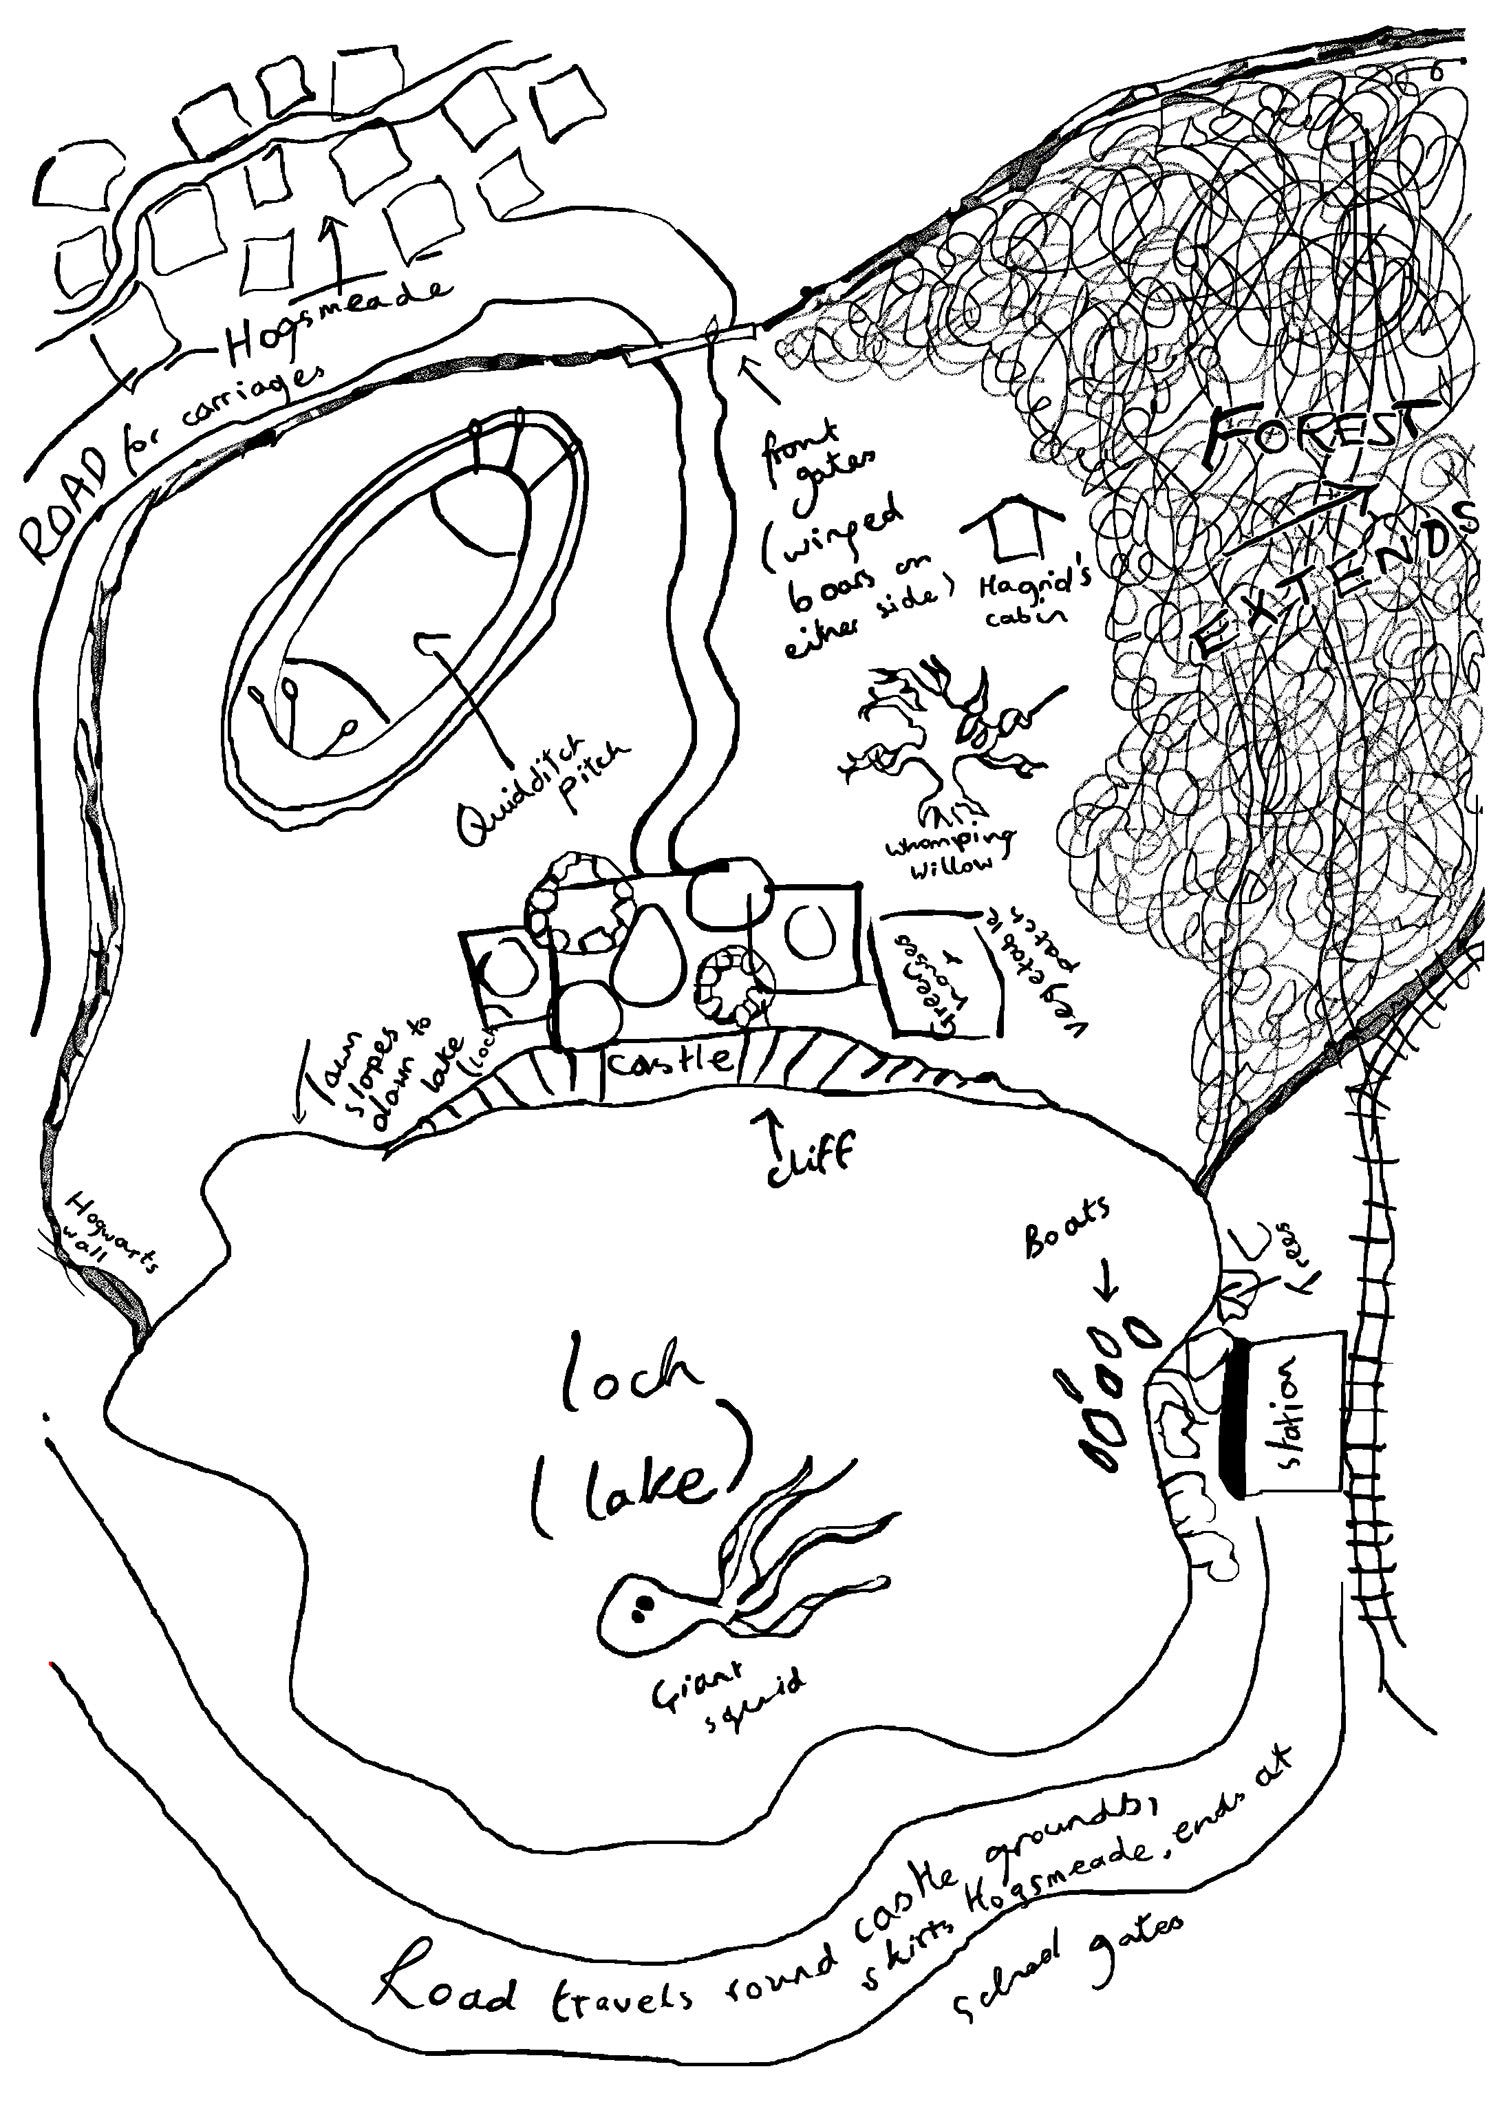 Hogsmeade
ROAD for carriages
front
gates
(winged
boars on
either side)
Hagrid's
cabin
FOREST
EXTENDS
Quidditch
pitch
whomping
willow
Green
houses
+
vegetable
patch
lawn
slopes to
down
lake
(loch
castle
cliff
Hogwarts
wall
Boats
trees
station
loch
(lake)
Giant
squid
Road travels round castle grounds,
skirts Hogsmeade, ends at
school gates